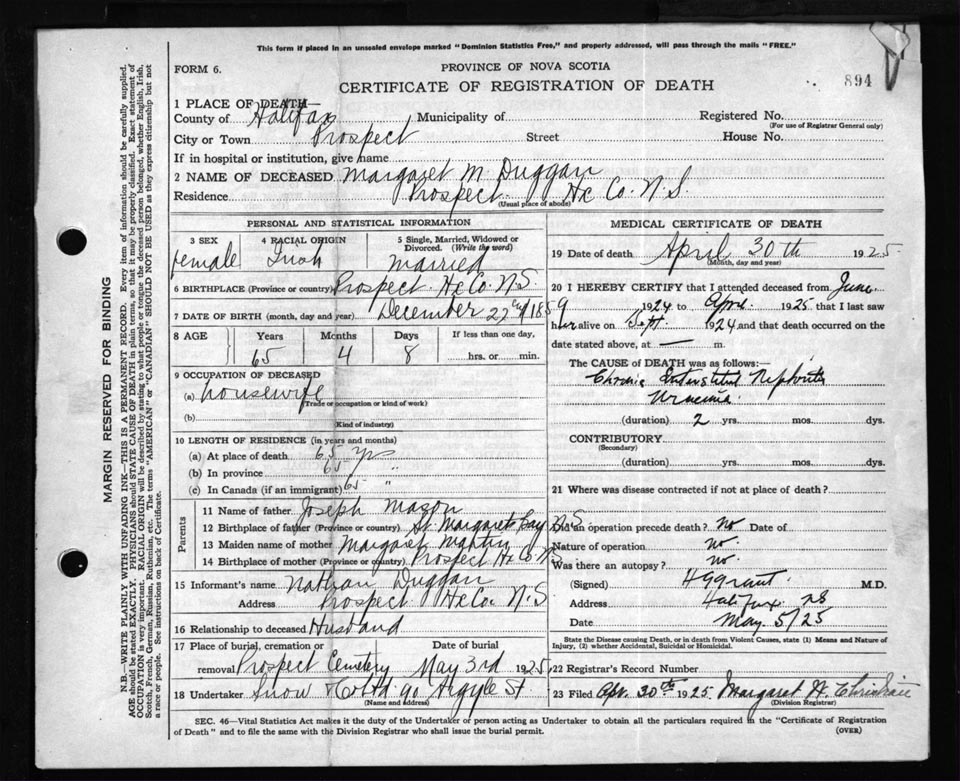 This form if placed in an unsealed envelope marked "Dominion Statistics Free," and properly addressed, will pass through the mails "FREE."
FORM 6.
PROVINCE OF NOVA SCOTIA
894
CERTIFICATE OF REGISTRATION OF DEATH
1 PLACE OF DEATH—
County of Halifax Municipality of Registered No.
(For use of Registrar General only)
City or Town Prospect Street House No.
If in hospital or institution, give name
2 NAME OF DECEASED Margaret M Duggan
Residence Prospect Hx Co. N.S.
(Usual place of abode)
PERSONAL AND STATISTICAL INFORMATION
3 SEX 4 RACIAL ORIGIN 5 Single, Married, Widowed or Divorced. (Write the word)
female Irish Married
6 BIRTHPLACE (Province or country) Prospect Hx Co. N.S.
7 DATE OF BIRTH (month, day and year) December 22nd 1859
8 AGE Years Months Days If less than one day,
65 4 8 hrs. or min.
9 OCCUPATION OF DECEASED
(a) housewife
(Trade or occupation or kind of work)
(b)
(Kind of industry)
10 LENGTH OF RESIDENCE (in years and months)
(a) At place of death 65 yrs
(b) In province 65 "
(c) In Canada (if an immigrant) 65 "
Parents
11 Name of father Joseph Mason
12 Birthplace of father (Province or country) St. Margarets Bay N.S.
13 Maiden name of mother Margaret Martin
14 Birthplace of mother (Province or country) Prospect Hx Co. N
15 Informant's name Nathan Duggan
Address Prospect Hx Co. N.S
16 Relationship to deceased Husband
17 Place of burial, cremation or Date of burial
removal Prospect Cemetery May 3rd 1925
18 Undertaker Snow & Co Ltd 90 Argyle St
(Name and address)
MEDICAL CERTIFICATE OF DEATH
19 Date of death April 30th 1925
(Month, day and year)
20 I HEREBY CERTIFY that I attended deceased from June
1924 to April 1925 that I last saw
her alive on Sept. 1924 and that death occurred on the
date stated above, at — m.
The CAUSE OF DEATH was as follows:
Chronic Interstitial Nephritis
Uraemia
(duration) 2 yrs. mos. dys.
CONTRIBUTORY
(Secondary)
(duration) yrs. mos. dys.
21 Where was disease contracted if not at place of death?
Did an operation precede death? no Date of
Nature of operation no.
Was there an autopsy? no.
(Signed) H G Grant. M.D.
Address Halifax NS
Date May 5/25
State the Disease causing Death, or in death from Violent Causes, state (1) Means and Nature of
Injury, (2) whether Accidental, Suicidal or Homicidal.
22 Registrar's Record Number
23 Filed Apr. 30th 1925 Margaret H.
(Division Registrar)
SEC. 46—Vital Statistics Act makes it the duty of the Undertaker or person acting as Undertaker to obtain all the particulars required in the "Certificate of Registration
of Death" and to file the same with the Division Registrar who shall issue the burial permit.
(OVER)
MARGIN RESERVED FOR BINDING
N.B.—WRITE PLAINLY WITH UNFADING INK—THIS IS A PERMANENT RECORD. Every item of information should be carefully supplied.
AGE should be stated EXACTLY. PHYSICIANS should STATE CAUSE OF DEATH in plain terms, so that it may be properly classified. Exact statement of
OCCUPATION is very important. RACIAL ORIGIN will be described by stating to what people or tongue the deceased person belonged, whether English, Irish,
Scotch, French, German, Russian, Ruthenian, etc. The terms "AMERICAN" or "CANADIAN" SHOULD NOT BE USED as they express citizenship but not
a race or people. See instructions on back of Certificate.